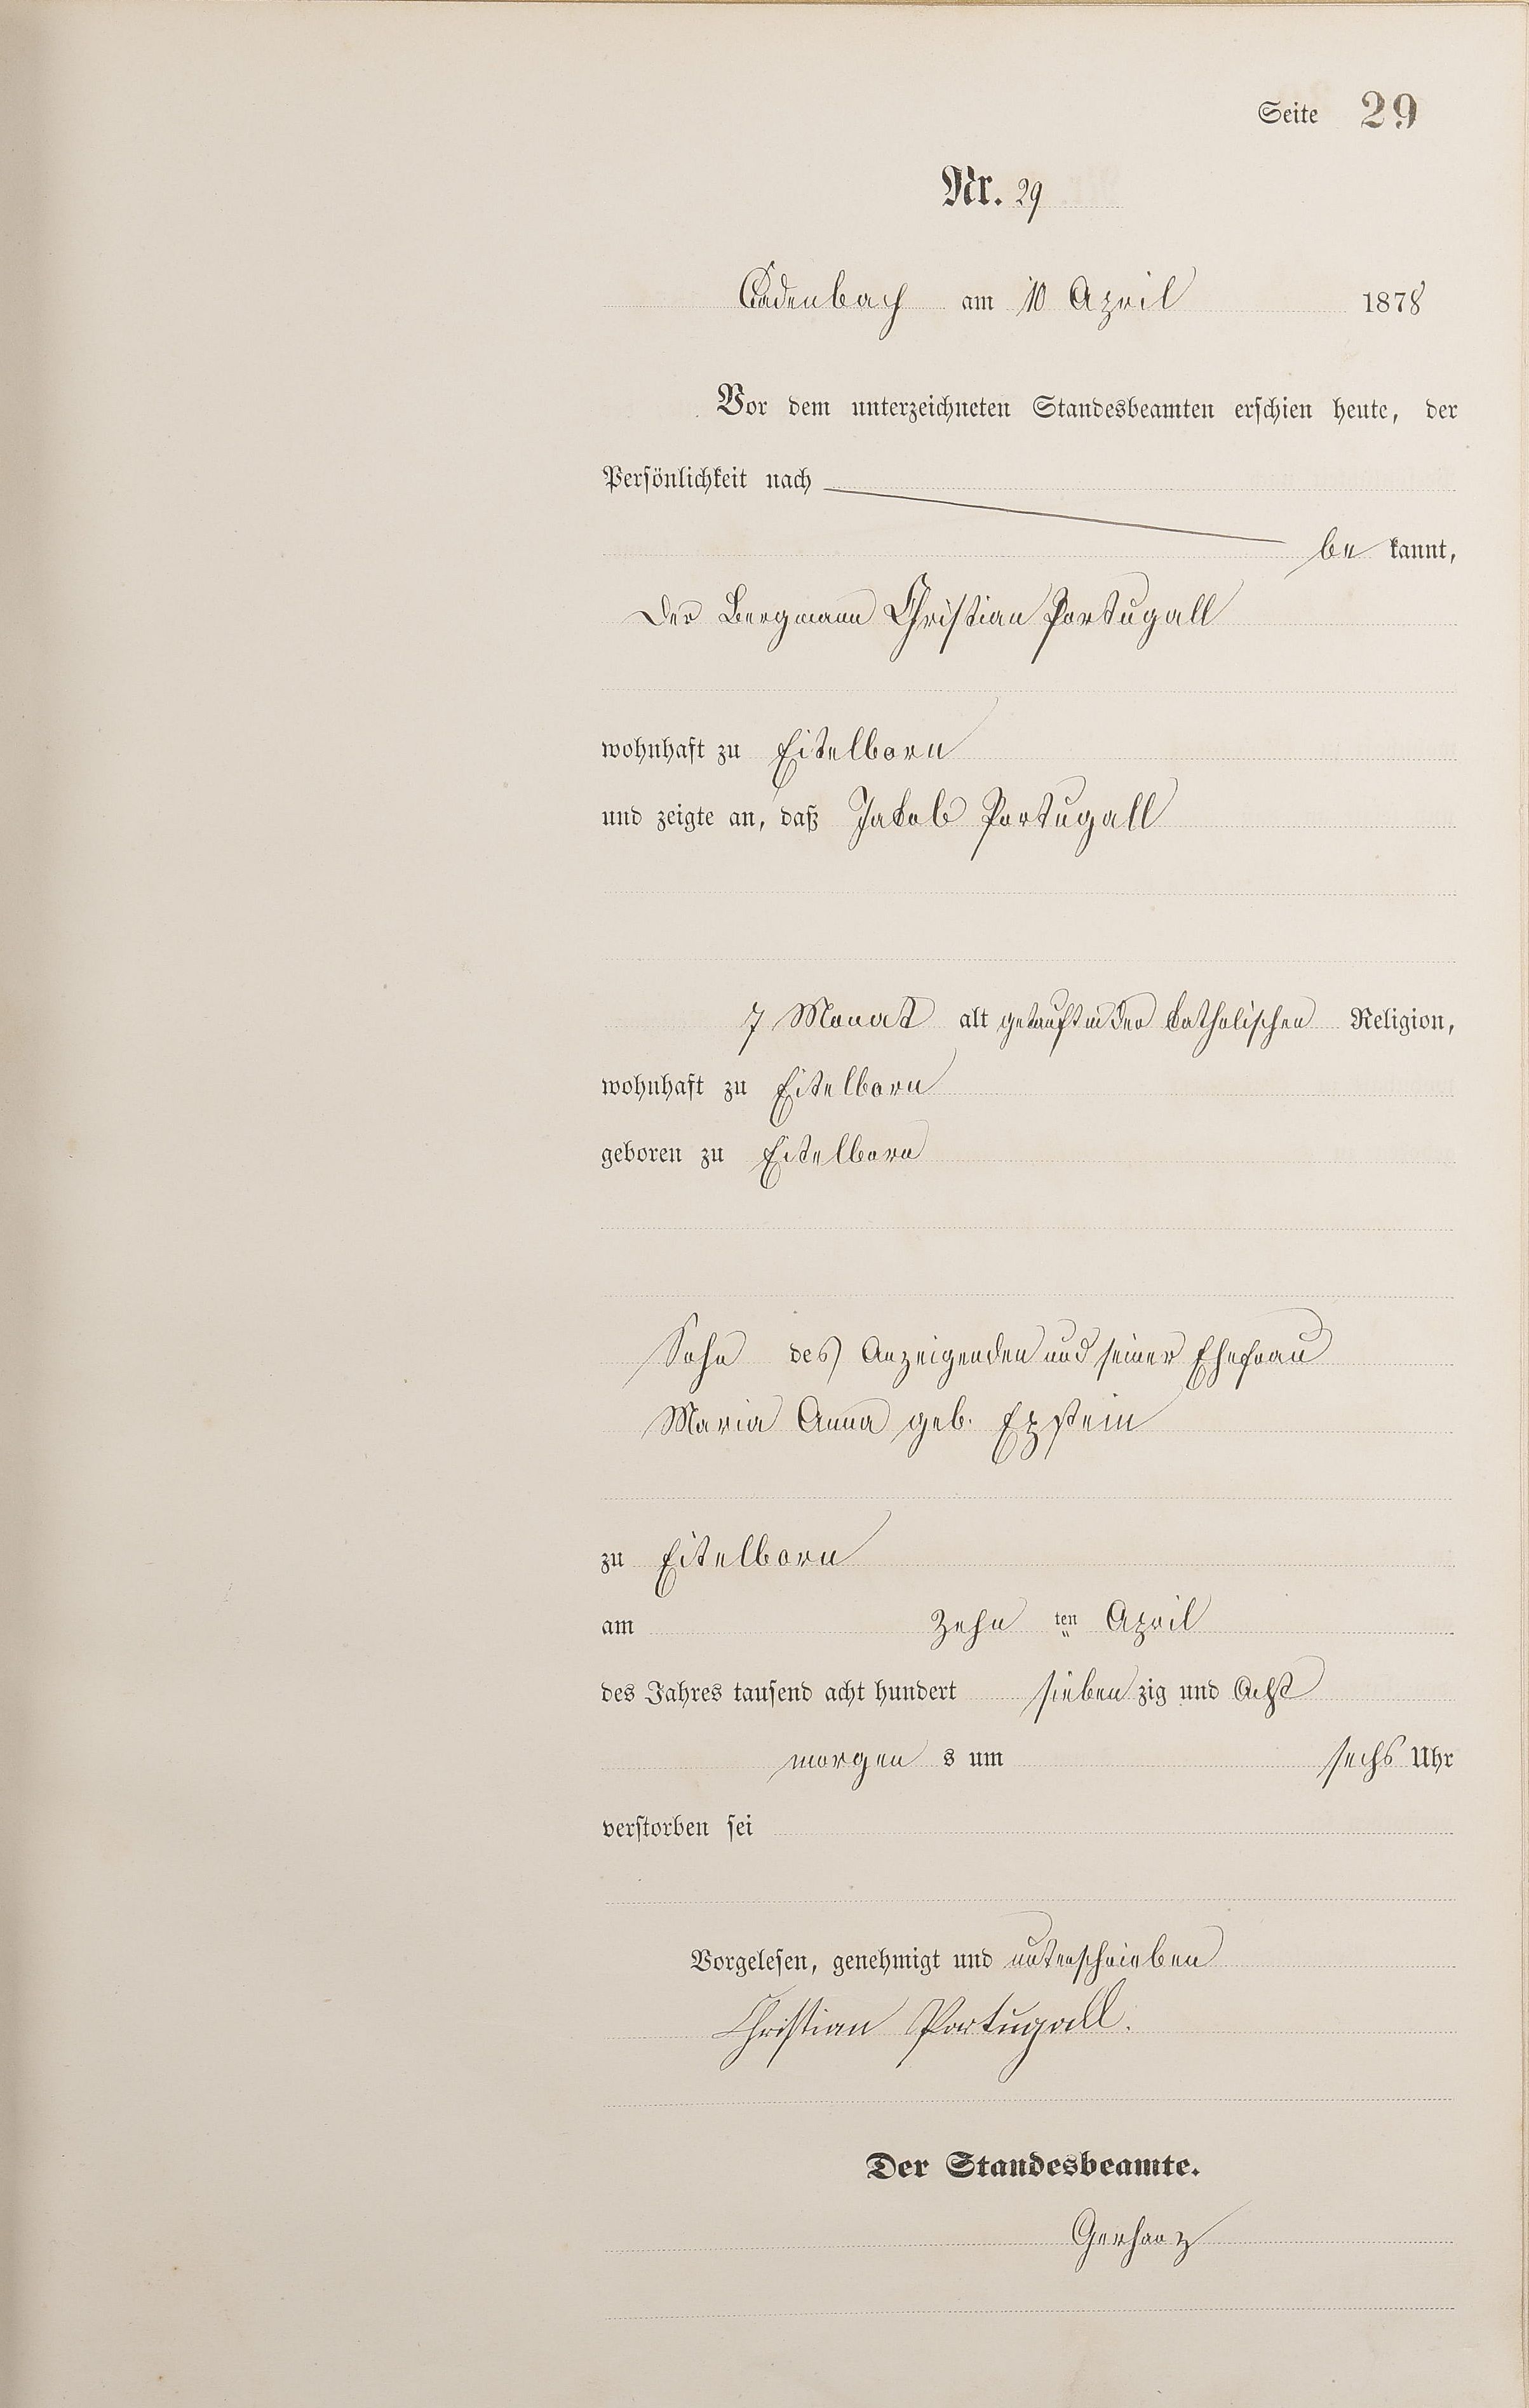 Seite 29
Nr. 29
Cadenbach am 10 April 1878
Vor dem unterzeichneten Standesbeamten erschien heute, der
Persönlichkeit nach
be kannt,
Der Bergmann Christian Portugall
wohnhaft zu Eitelborn
und zeigte an, daß Jakob Portugall
7 Monat alt getauft in der katholischen Religion,
wohnhaft zu Eitelborn
geboren zu Eitelborn
Sohn des Anzeigenden und seiner Ehefrau
Maria Anna geb. Epstein
zu Eitelborn
am Zehn ten April
des Jahres tausend acht hundert sieben zig und Acht
morgen s um sechs Uhr
verstorben sei
Vorgelesen, genehmigt und unterschrieben
Christian Portugall.
Der Standesbeamte.
Gerharz